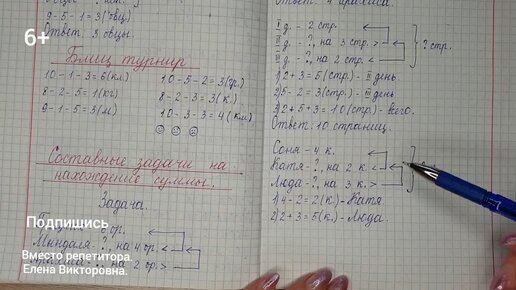 9-5-1=3(овц)
Ответ: 3 овцы.
6+
Блиц турнир
10-1-3=6(кл)
8-2-5=1(кг)
9-1-5=3(м)
10-5-2=3(гр.)
8-2-3=3(к.)
10-3-3=4(км)
Составные задачи на
нахождение суммы.
Задача.
Подпишись
Миндаля-?, на 4 ор.
-?, на 2 ор. >
Вместо репетитора.
Елена Викторовна.
Ответ: 4
I д. - 2 стр.
II д. - ?, на 3 стр. >
III д. - ?, на 2 стр. <
? стр.
1) 2+3=5(стр.)- II день
2) 5-2=3(стр.)- III день
3) 2+5+3=10(стр.)- всего.
Ответ: 10 страниц.
Соня - 4 к.
Катя - ?, на 2 к. <
Люда - ?, на 3 к. >
1) 4-2=2(к.)- Катя
2) 2+3=5(к.)- Люда.